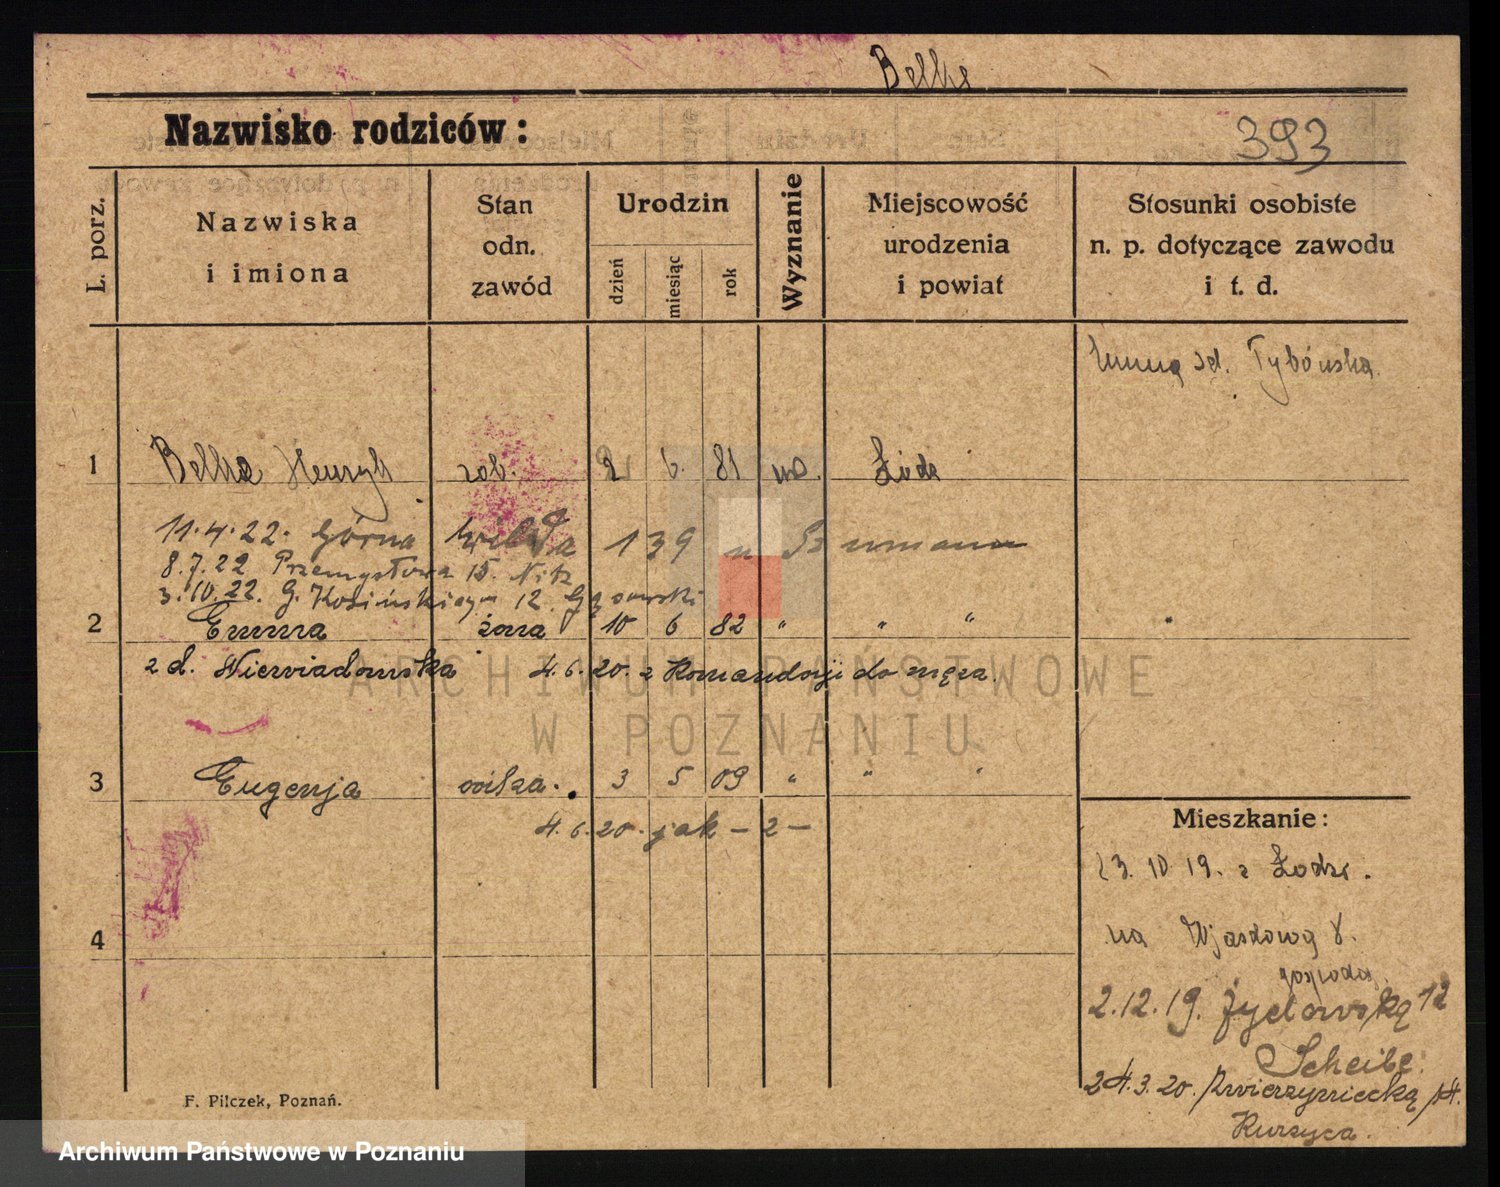 Belke
Nazwisko rodziców:
393
L. porz.
Nazwiska
i imiona
Stan
odn.
zawód
Urodzin
dzień
miesiąc
rok
Wyznanie
Miejscowość
urodzenia
i powiat
Stosunki osobiste
n. p. dotyczące zawodu
i t. d.
1 Belka Henryk rob. 2 6. 81 Łódz
11.4.22. Górna Wilda 139 u Szumann
8.7.22 Przemysłowa 15. Nitz
3.10.22. G. Kosińskiego 12.
2 Emma żona 10 6 82 " " "
z d. Nierviadomska 4.6.20. z Komandorji do męża.
3 Eugenja córka. 3 5 09 " " "
4.6.20. jak - 2 -
4
Mieszkanie:
23. 10 19. z Łodzi.
na Wjazdową 8.
gospoda
2.12.19. Żydowską 12
Scheibe.
24.3.20. Zwierzyniecką 14.
Kurzyca.
F. Pilczek, Poznań.
ARCHIWUM PAŃSTWOWE
W POZNANIU
Archiwum Państwowe w Poznaniu